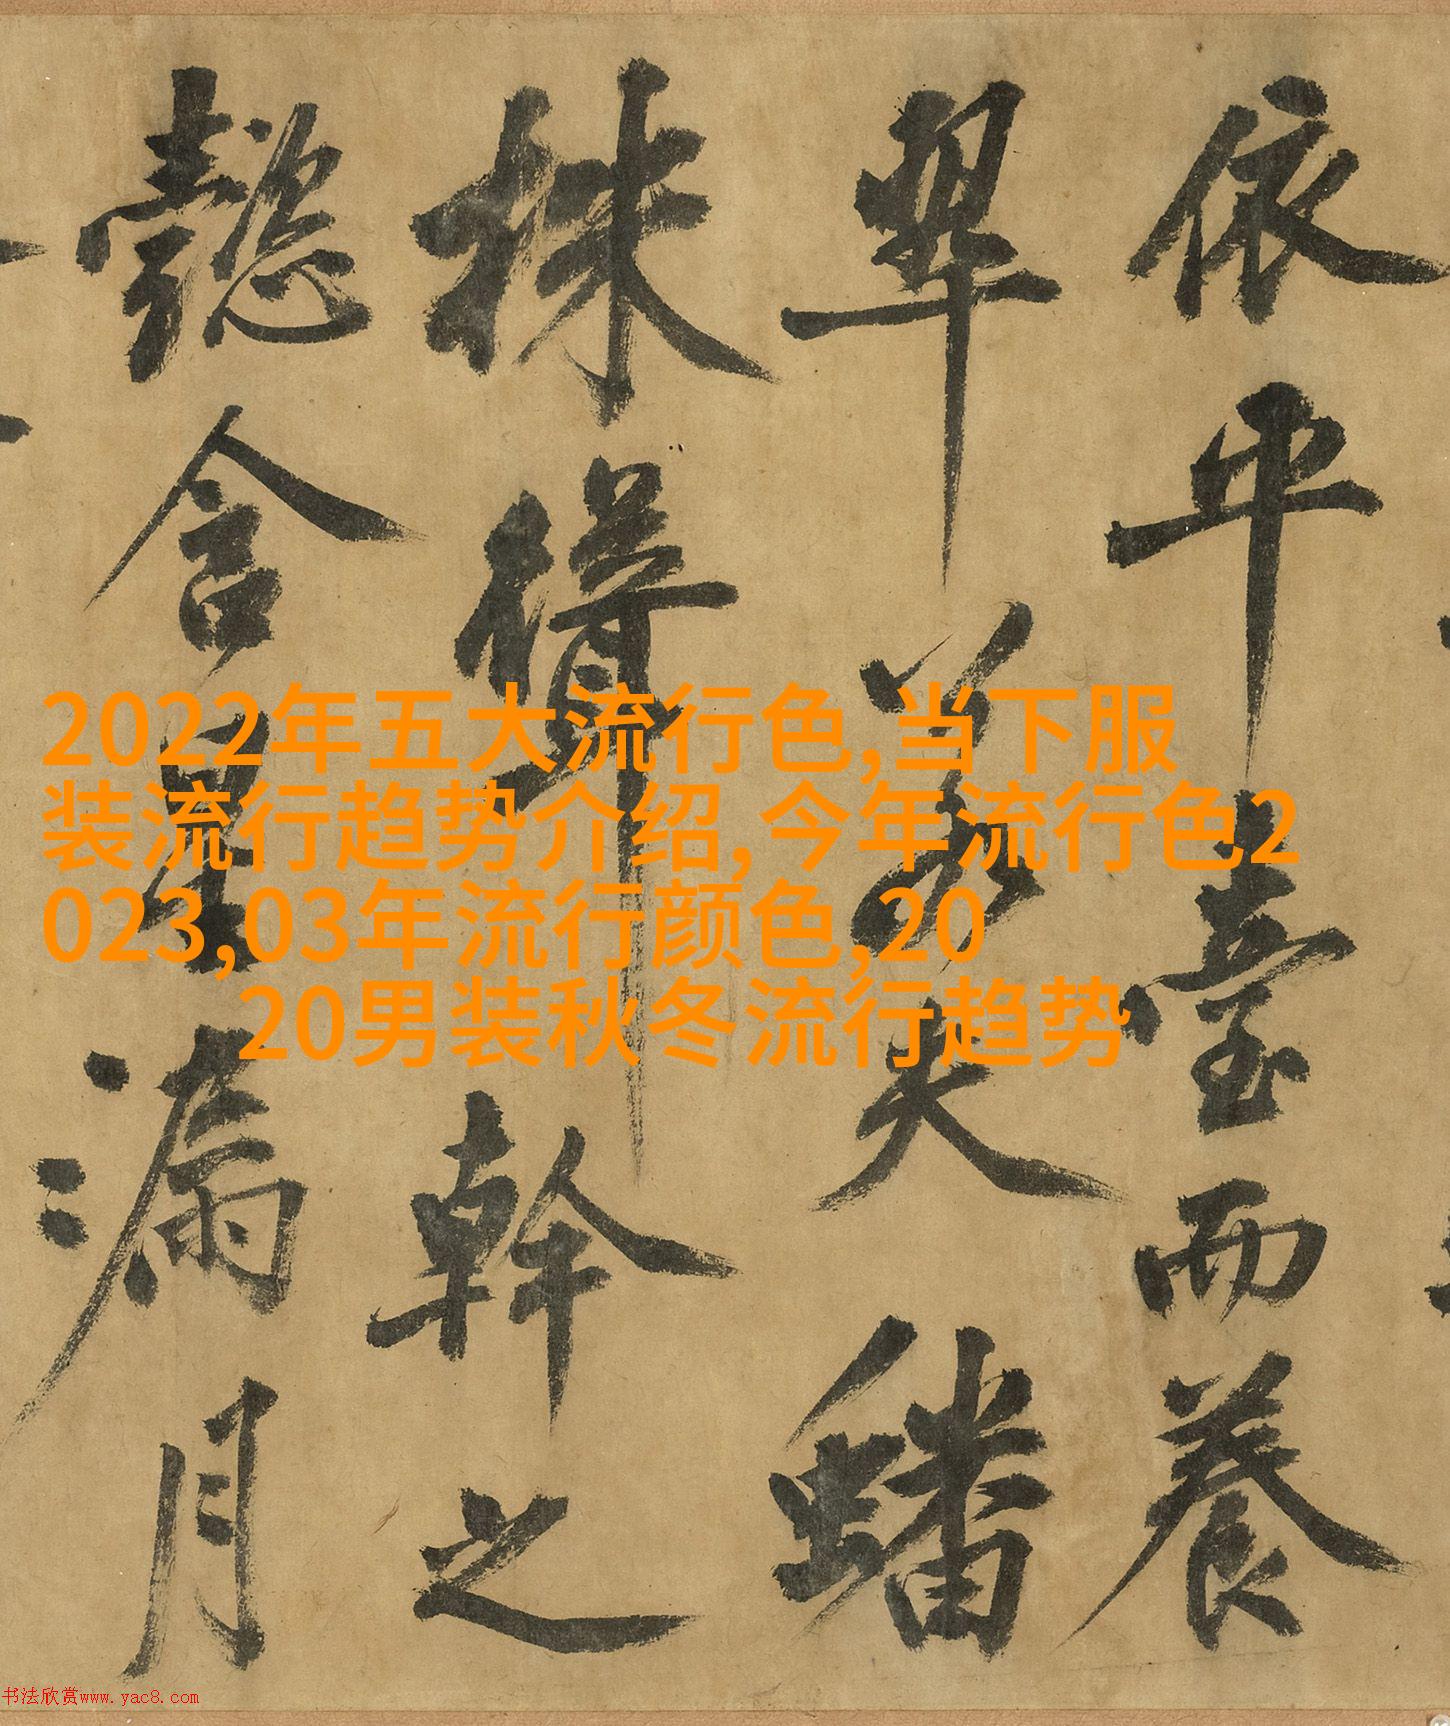 依平臺而養
翠若夫蟠
株聳幹之
懿含星漏月
2022年五大流行色,当下服
装流行趋势介绍,今年流行色2
023,03年流行颜色,20
20男装秋冬流行趋势
书法欣赏www.yac8.com